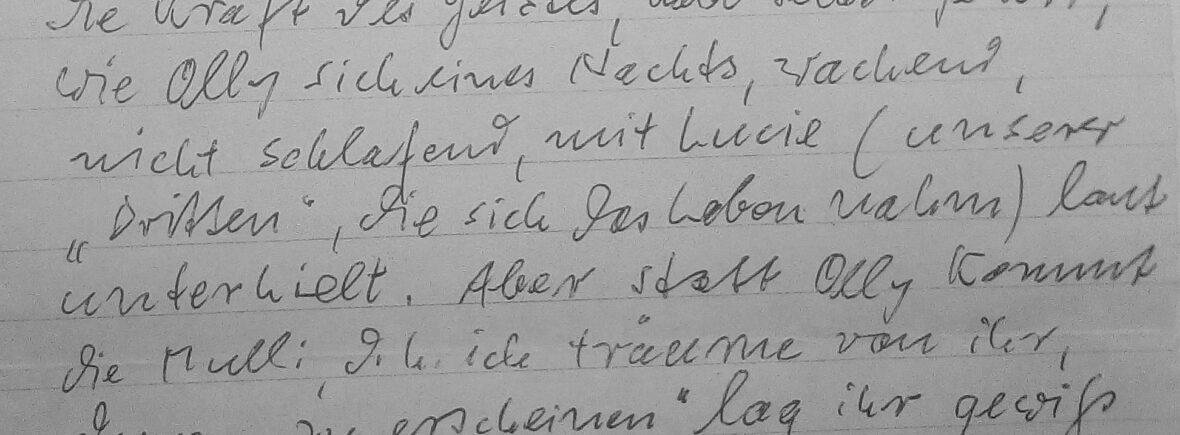 die Kraft des Geistes,
wie Olly sich eines Nachts, wachend,
nicht schlafend, mit Lucie (unserer
„Dritten“, die sich das Leben nahm) laut
unterhielt. Aber statt Olly kommt
die Mulli, d.h. ich träume von ihr,
erscheinen“ lag ihr gewiß